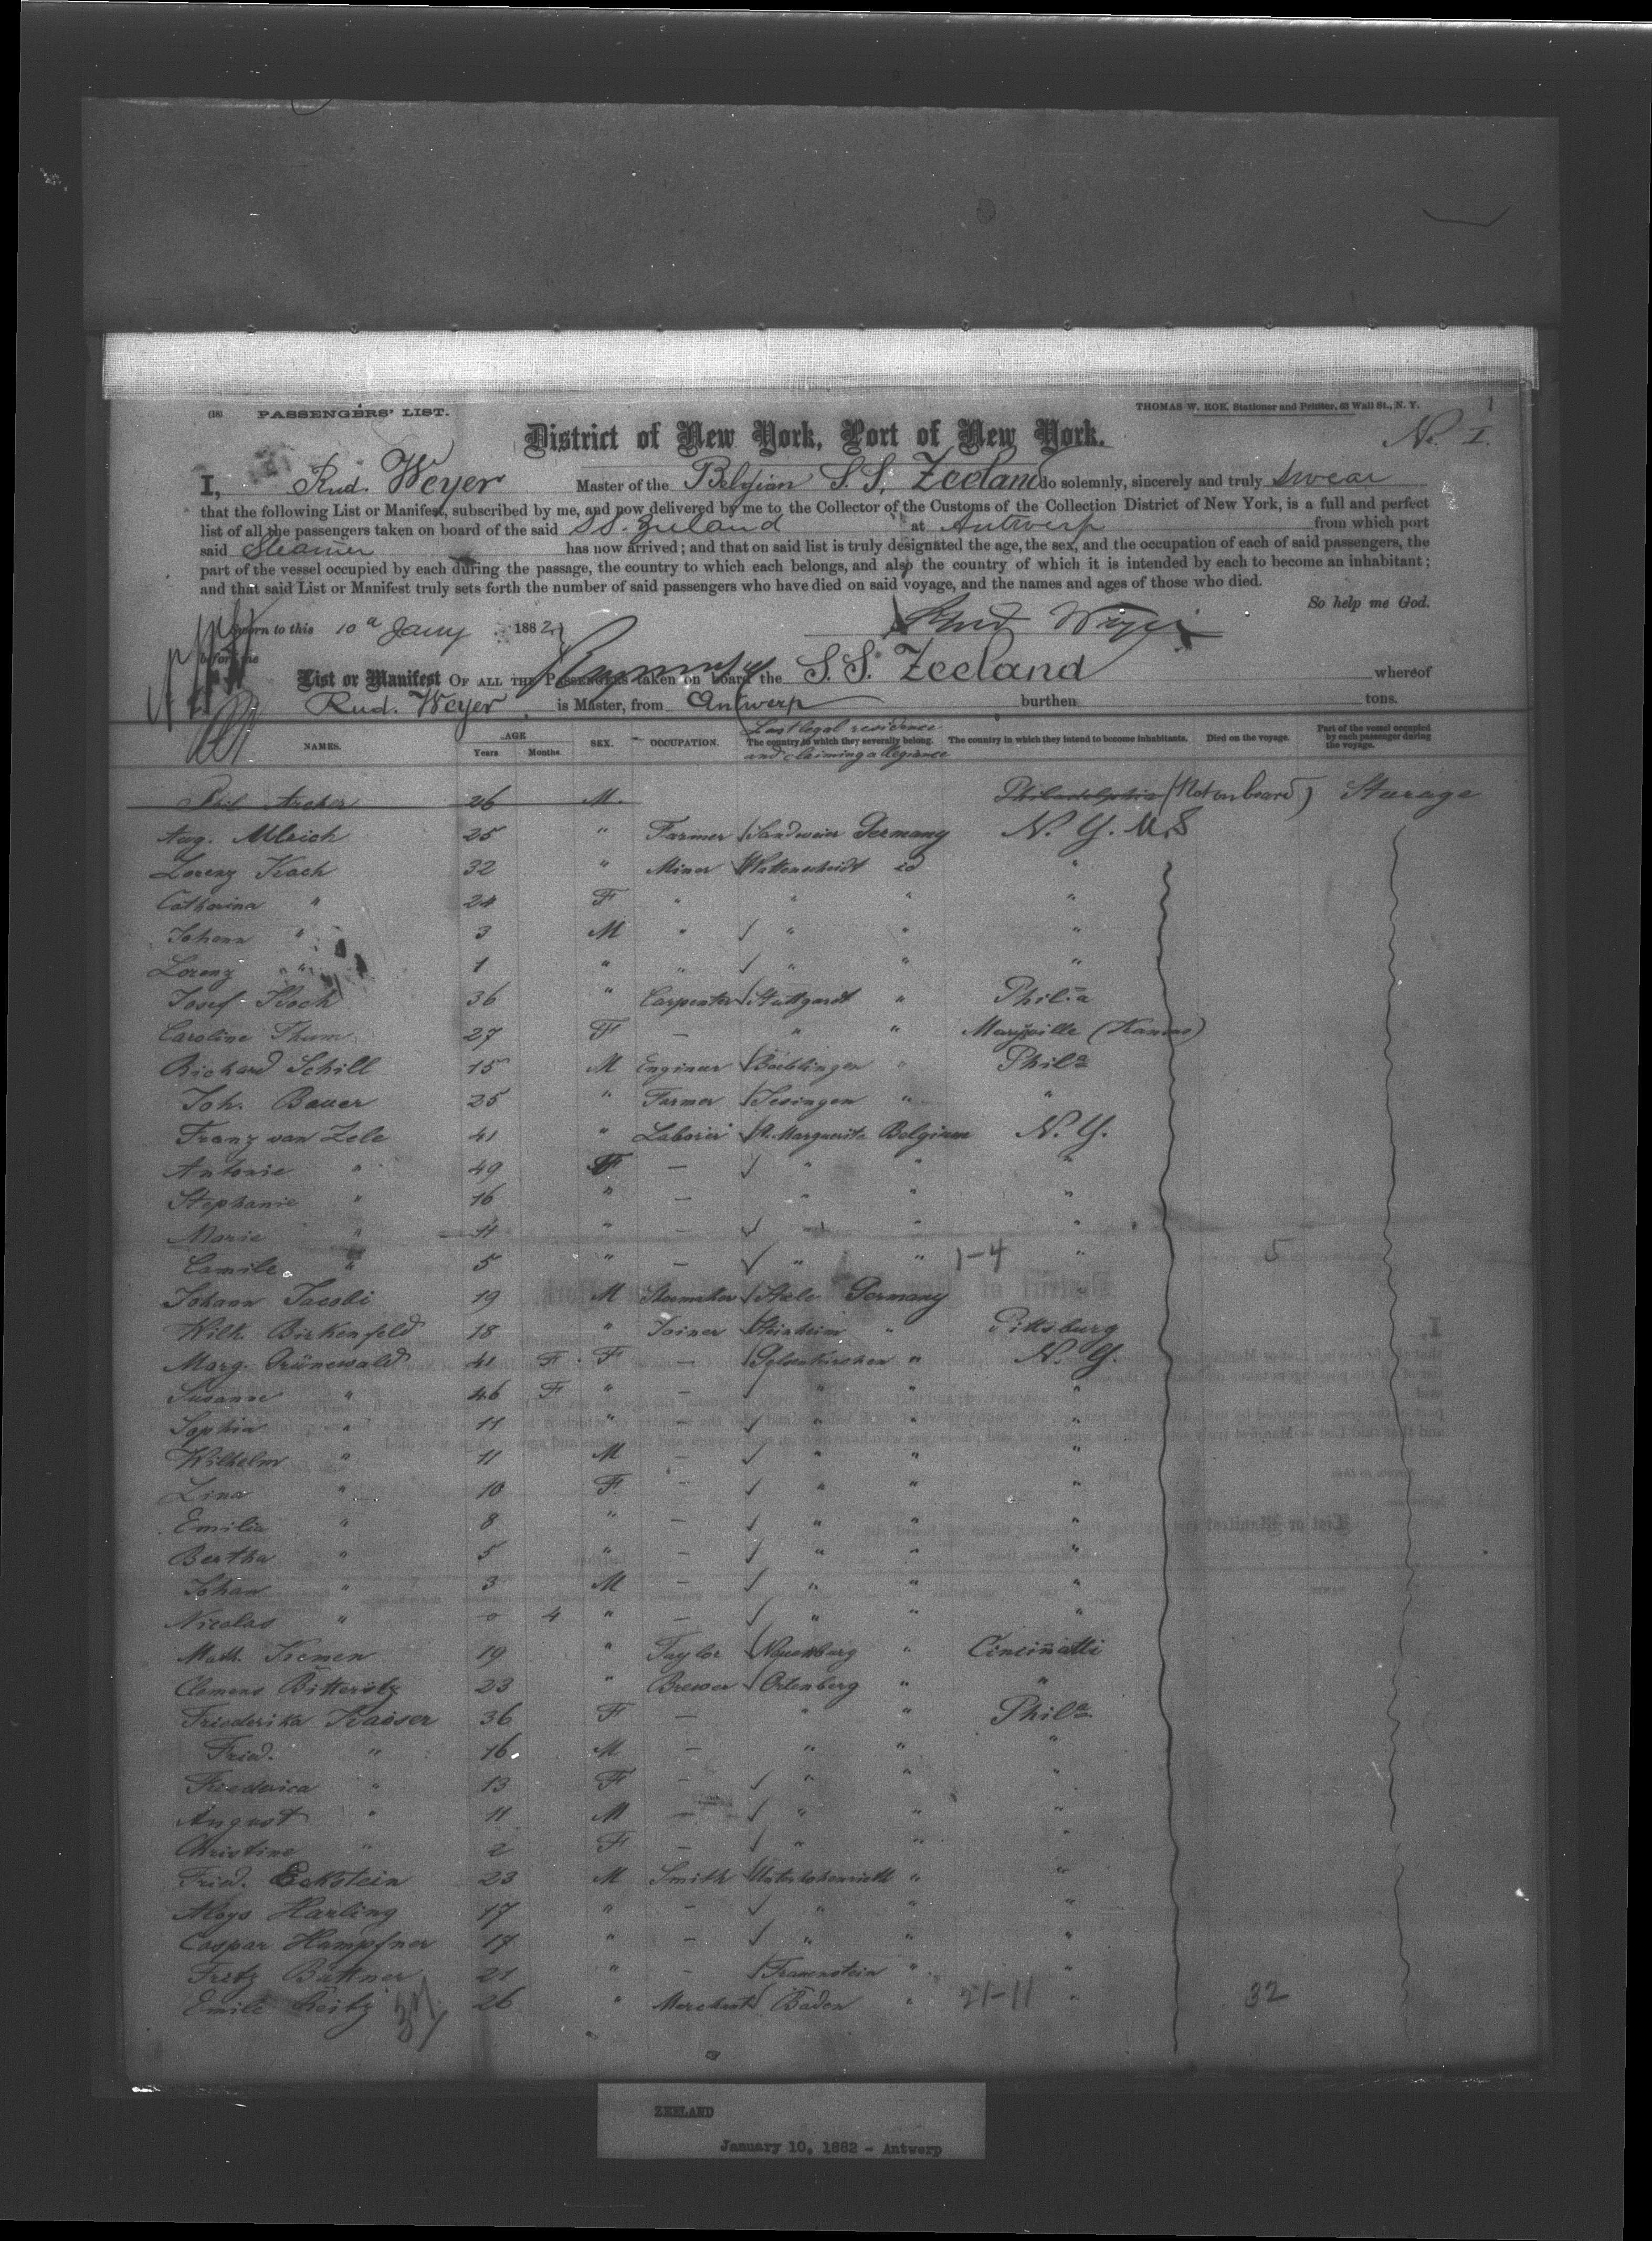 (18) PASSENGERS' LIST. THOMAS W. ROE, Stationer and Printer, 63 Wall St., N. Y. 1
District of New York, Port of New York. No. I.
I, Rud. Weyer Master of the Belgian S.S. Zeeland do solemnly, sincerely and truly swear
that the following List or Manifest, subscribed by me, and now delivered by me to the Collector of the Customs of the Collection District of New York, is a full and perfect
list of all the passengers taken on board of the said S.S. Zeeland at Antwerp from which port
said Steamer has now arrived; and that on said list is truly designated the age, the sex, and the occupation of each of said passengers, the
part of the vessel occupied by each during the passage, the country to which each belongs, and also the country of which it is intended by each to become an inhabitant;
and that said List or Manifest truly sets forth the number of said passengers who have died on said voyage, and the names and ages of those who died.
So help me God.
Sworn to this 10 Jany 1882 Rud Weyer
before me
List or Manifest OF ALL THE PASSENGERS taken on board the S.S. Zeeland whereof
Rud. Weyer is Master, from Antwerp burthen tons.
Last legal residence
NAMES. AGE Years Months SEX. OCCUPATION. The country to which they severally belong. The country in which they intend to become inhabitants. Died on the voyage. Part of the vessel occupied by each passenger during the voyage.
and claiming allegiance
Phil Archer 26 M. Philadelphia (Not on board) Sturage
Aug. Ulrich 25 " Farmer Sandweier Germany N. Y. U.S
Lorenz Koch 32 " Miner Wattenscheidt id "
Catharina " 24 F " " " "
Johann " 3 M " " " "
Lorenz " 1 " " " " "
Josef Koch 36 " Carpenter Stuttgardt " Phila
Caroline Thum 27 F — " " Marysville (Kansas)
Richard Schill 15 M Engineer Boeblingen " Phila
Joh. Bauer 25 " Farmer Jesingen " "
Franz van Zele 41 " Laborer St. Marguerite Belgium N. Y.
Antonie " 49 F — " " "
Stephanie " 16 " — " " "
Marie " 11 " — " " "
Camile " 5 " — " " 1-4 " 5
Johann Jacobi 19 M Shoemaker Stele Germany "
Wilh. Birkenfeld 18 " Joiner Steinheim " Pittsburg
Marg. Grünewald 41 F F — Gelsenkirchen " N. Y.
Susanne " 46 F " — " " "
Sophia " 11 " — " " "
Wilhelm " 11 M — " " "
Lina " 10 F — " " "
Emilie " 8 " — " " "
Bertha " 5 " — " " "
Johan " 3 M — " " "
Nicolas " 0 4 " — " " "
Math. 19 " Taylor " Cincinatti
Clemens 23 " Brewer Ortenberg " "
Friederika Kaiser 36 F — " " Phila
Fried. " 16 M — " " "
Friederica " 13 F — " " "
August " 11 M — " " "
Christine " 2 F — " " "
Fried. Eckstein 23 M Smith " "
Aloys Harling 17 " — " " "
Caspar Humpfner 17 " — " " "
Fritz Büttner 21 " — Frauenstein " "
Emile Reitz 26 " Merchant Baden " 21-11 " 32
ZEELAND
January 10, 1882 - Antwerp